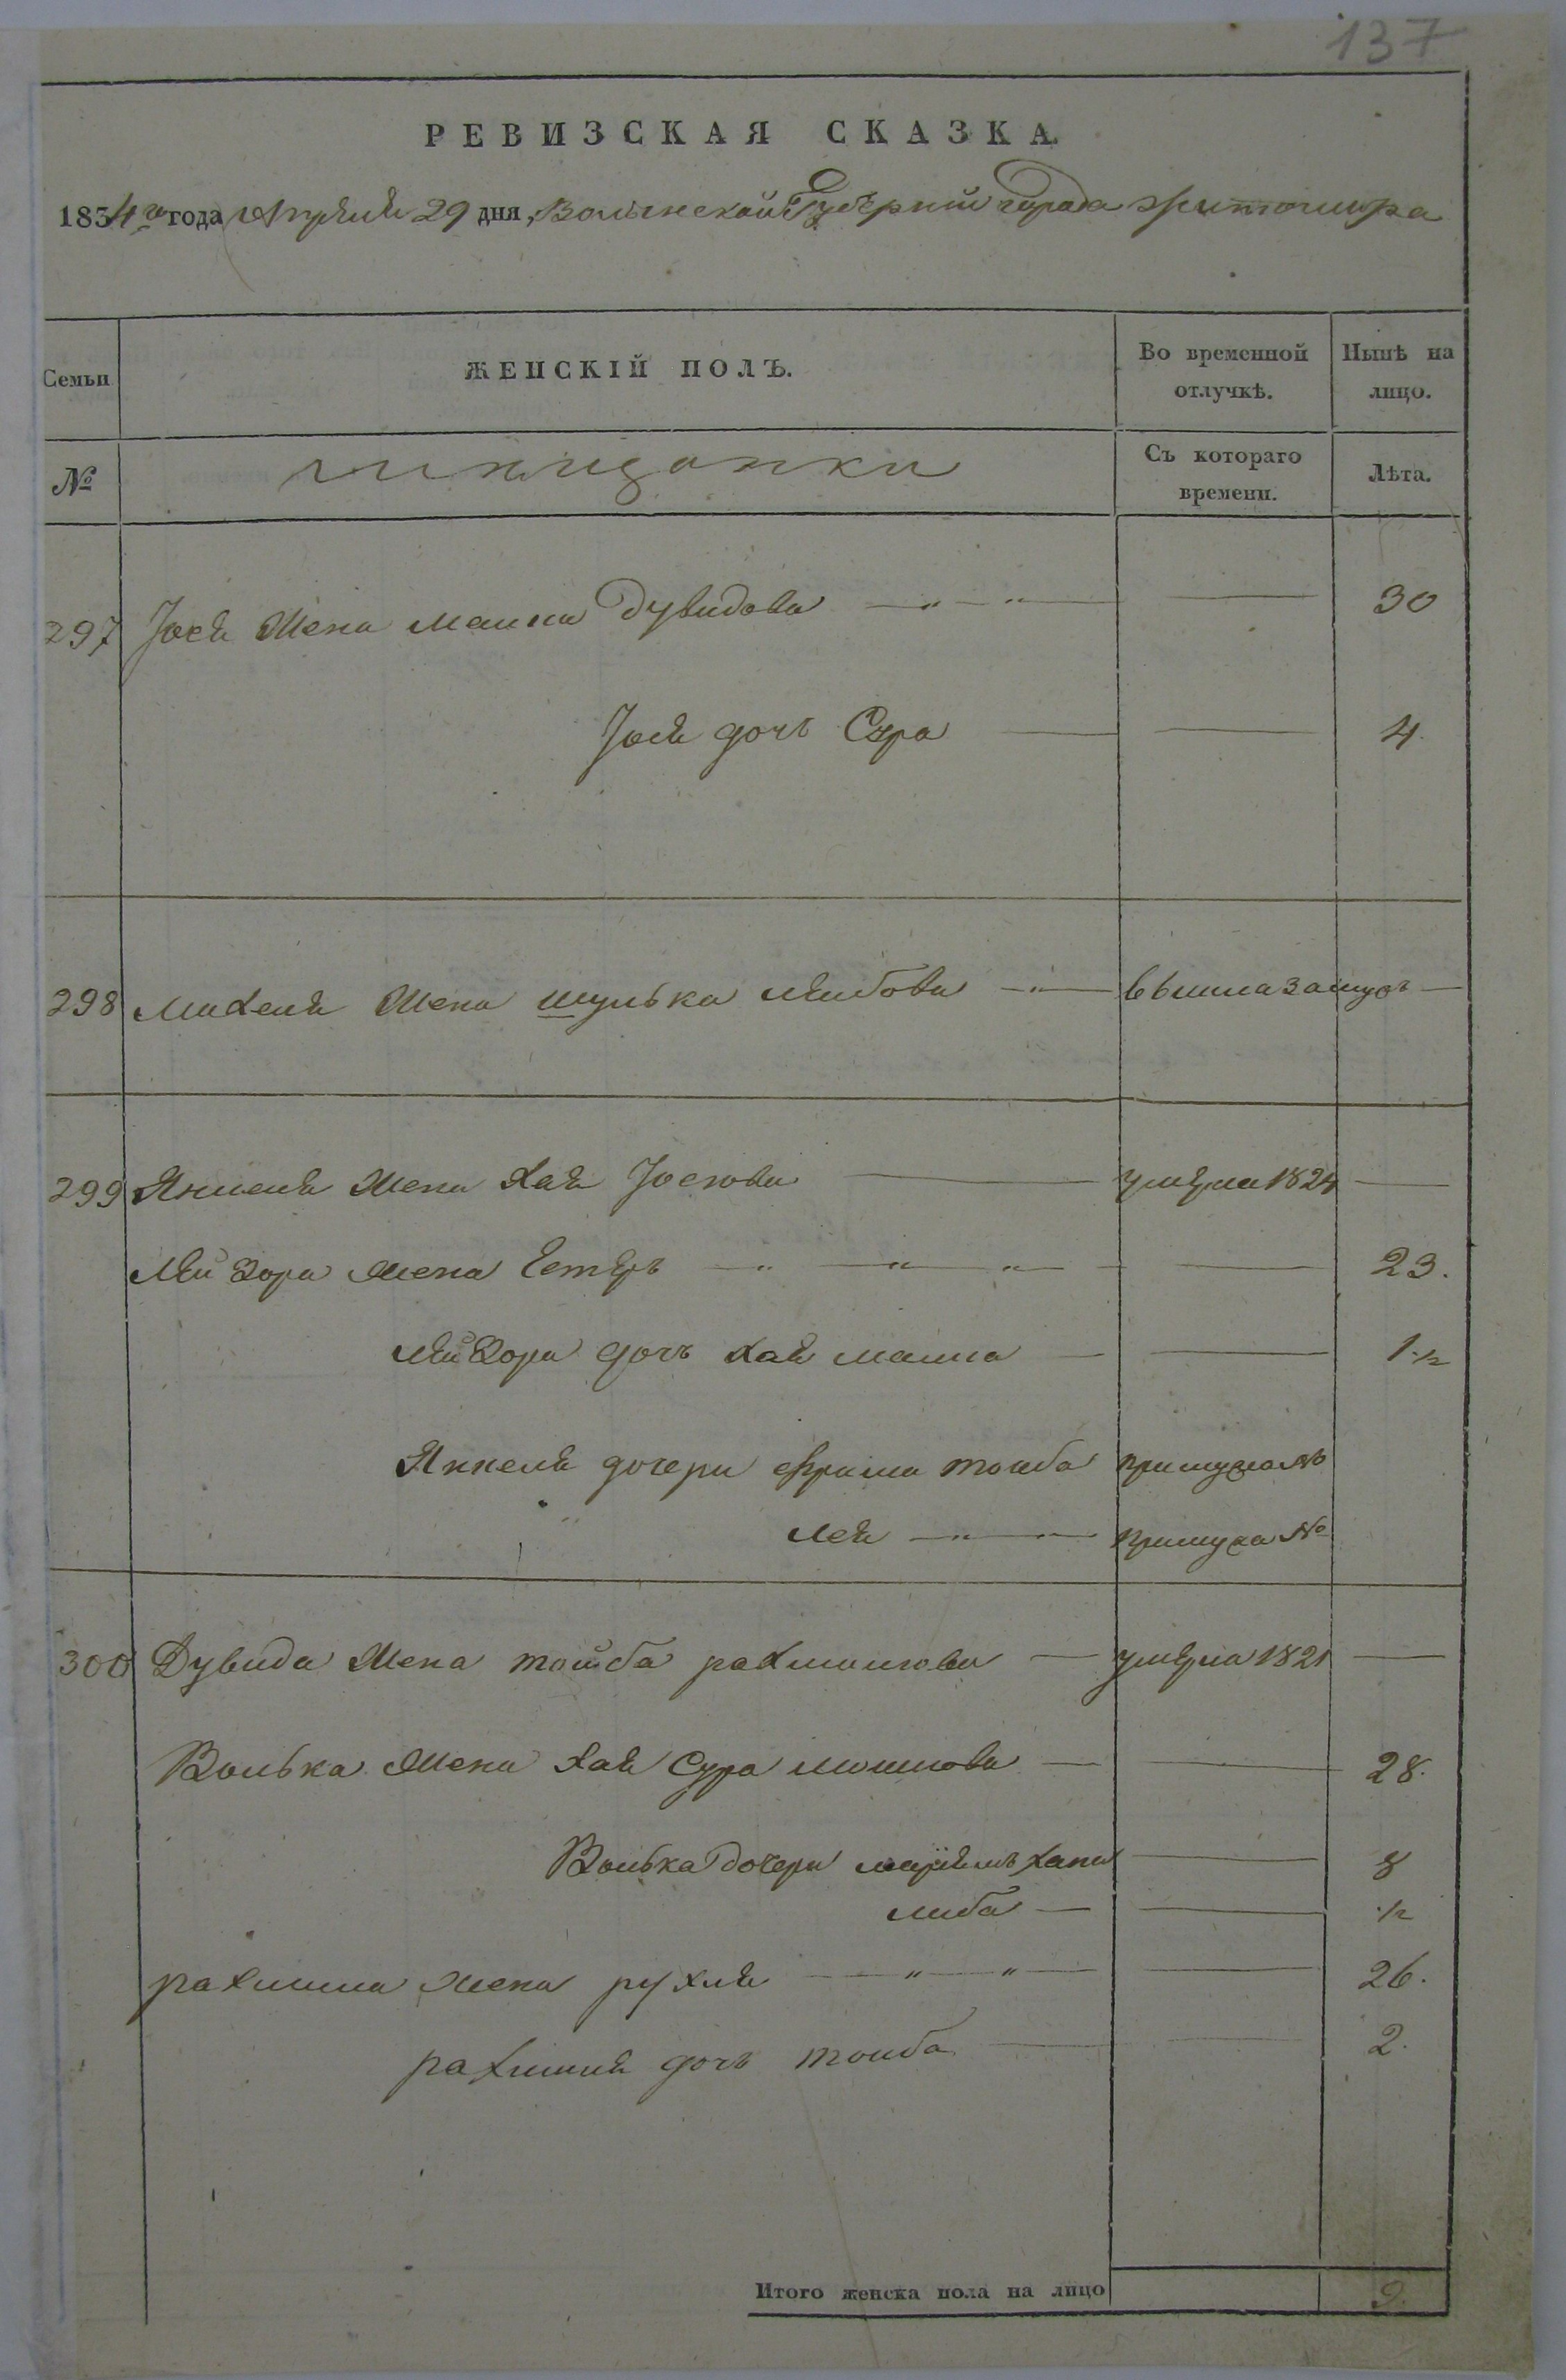 137
РЕВИЗСКАЯ СКАЗКА.
1834го года Апреля 29 дня, Волынской Губерніи города Житомира
Семьи ЖЕНСКІЙ ПОЛЪ. Во временной отлучкѣ. Нынѣ на лицо.
№ мищанки Съ котораго времени. Лѣта.
297 Јося Жена Малка Дувидова — " — " — — 30
Јося дочь Сура — — 4.
298 Михеля Жена Шулька Лейбова — " — вышла замуж —
299 Янкеля Жена Хая Јоскова — умерла 1824 —
Лейзора Жена Естеръ — " — " — " — — 23.
Лейзора дочь Хая Малка — — 1 1/2
Янкеля дочери Фрима Тойба при мужа №
Лея — " — при мужа №
300 Дувида Жена Тойба рахмилова — умерла 1821 —
Волька Жена Хая Сура Мошкова — — 28.
Волька дочери маріемъ хана — 8
либа — — 1/2
рахмила жена рухля — " — " — — 26.
рахмиля дочь тойба — — 2.
Итого женска пола на лицо 9.